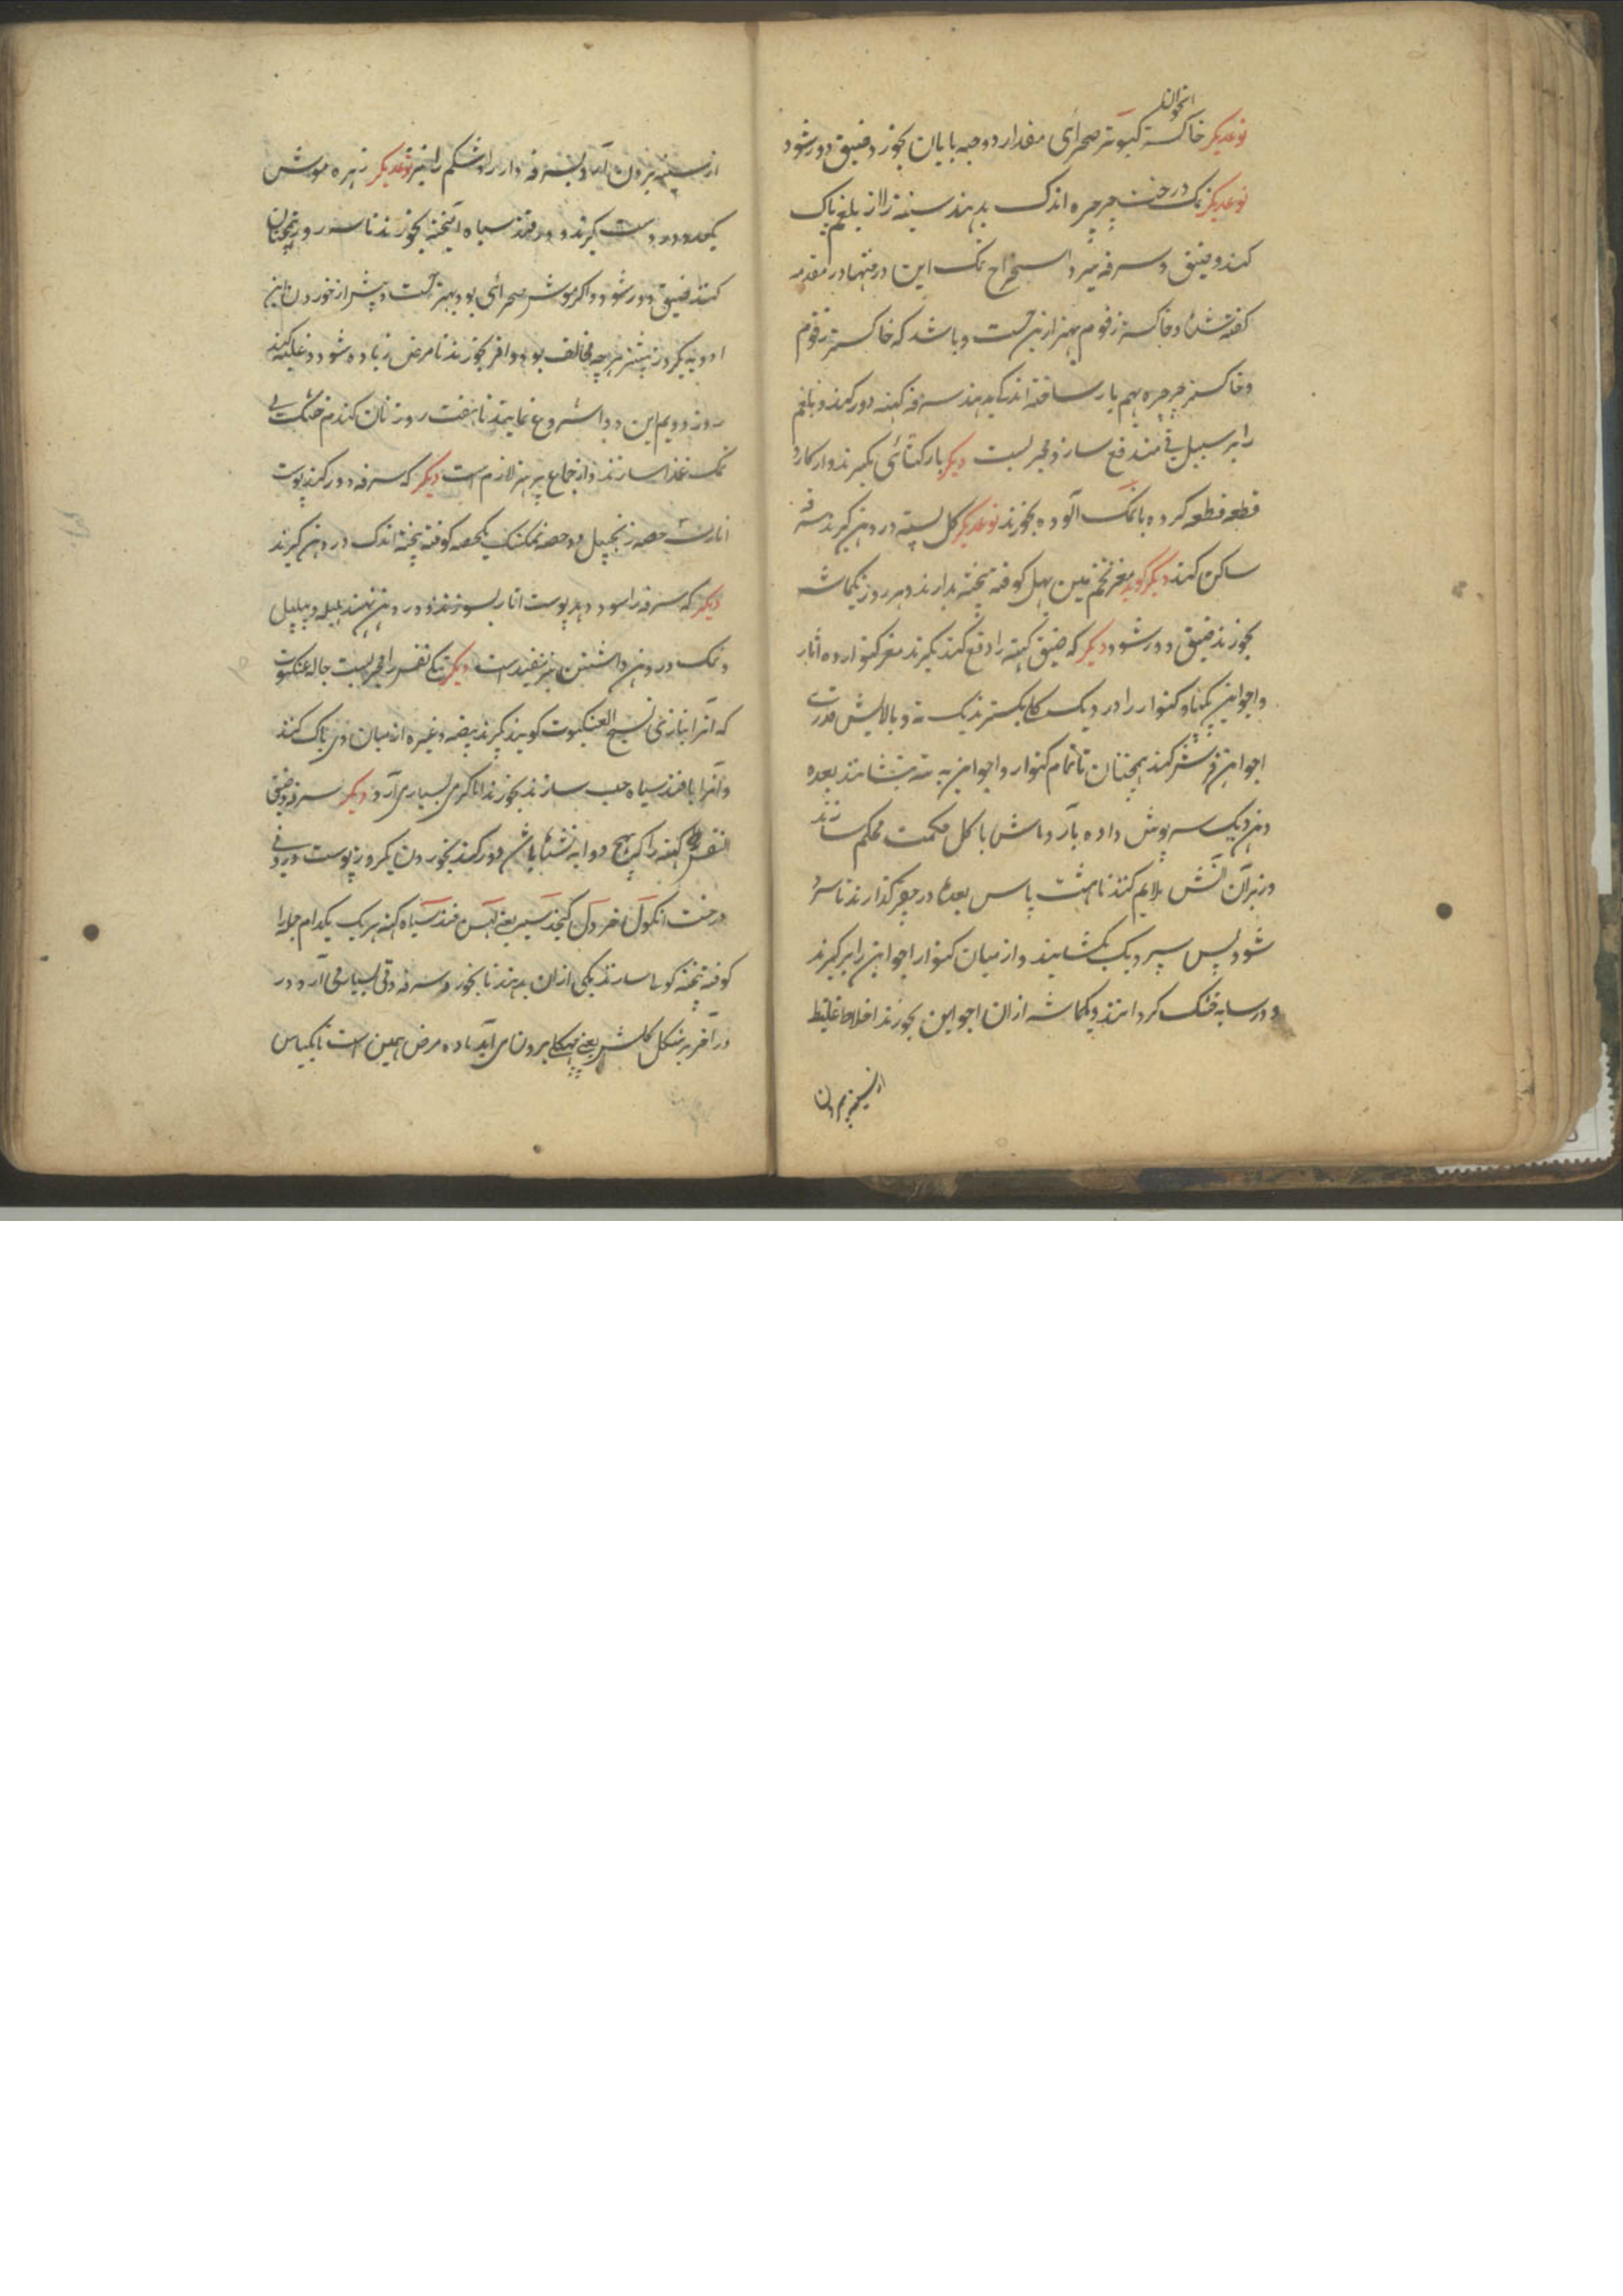 استخوان
نوعدیکر خاکستر کبوتر صحرای مقدار دو حبه با پان بخورد ضیق دور شود
نوعدیکر نمک درخت چرچره اندک بدهند سینه را از بلغم پاک
کند و ضیق و سرفه ببرد استخراج نمک این درختها در مقدمه
کفته شده و خاکستر زقوم بهتر ازین است و باشد که خاکستر زقوم
و خاکستر چرچره بهم یار ساخته اندک بدهند سرفه کهنه دور کند و بلغم
را بر سبیل قی مندفع سازد مجربست دیکر بار کتائی بکیرند و از کارد
قطعه قطعه کرده با نمک آلوده بخورند نوعدیکر کل پسته در دهن کیرند سرفه
ساکن کند دیکر کوید مغز تخم مین پهل کوفته بیخته بدارند و هر روز یکماشه
بخورند ضیق دور شود دیکر که ضیق کهنه را دفع کند بکیرند مغز کنوار ده اثار
و اجواین یکپاو کنوار را در دیک کلی بکسترند یک ته و بالایش قدری
اجواین فرش کنند همچنان تا تمام کنوار و اجواین به ته بنشانند بعده
دهن دیک سرپوش داده بآرد ماش با کل حکمت محکم سازند
و زیر آن آتش ملایم کنند تا هشت پاس بعده در جغر کذارند تا سرد
شود پس سر دیک بکشایند و از میان کنوار اجواین را بر کیرند
و در سایه خشک کردانند و یکماشه ازان اجواین بخورند اخلاط غلیظ
از سینه بیرون
از سینه بیرون آید و سرفه دار را و شکم را نیز نوعدیکر زهره موش
یکعدد درست کیرند و در قند سیاه آمیخته بخورند تا سه روز همچنان
کنند ضیق دور شود و اکر موش صحرائی بود بهتر است و پیش از خوردن این
ادویه یکروز پیشتر هرچه مخالف بود وافر بخورند تا مرض زیاده شود و غلبه کند
روز دویم این دوا شروع نمایند تا هفت روز نان کندم خشک بی
نمک غذا سازند و از جماع پرهیز لازم است دیکر که سرفه دور کند پوست
انار حصه زنجبیل دو حصه نمک یک حصه کوفته بیخته اندک در دهن کیرند
دیکر که سرفه را سود دهد پوست انار بسوزند و در دهن نهند هلیله و پیپل
و نمک در دهن داشتن نیز مفید است دیکر تنکی نفس را مجربست جاله عنکبوت
که آنرا بتازی نسیج العنکبوت کویند بکیرند بیضه و غیره از میان وی پاک کنند
و آنرا با قند سیاه حب سازند بخورند اما کرمی بسیار می آرد دیکر سرفه و ضیق
النفس کهنه را که بهیچ دوا به نشده باشد دور کند بخوردن یکروز پوست درونی
درخت انکول خردل کنجد سیر یعنی لهسن قند سیاه کهنه هر یک یکدام جمله را
کوفته بیخته کولی سازند یکی ازان بدهند تا بخورد سرفه و قی بسیار می آرد و در
و در آخر بشکل کلش یعنی پهپکا بیرون می آید ماده مرض همین است تا یکپاس